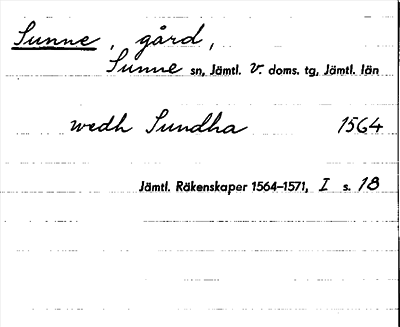 Sunne, gård,
Sunne sn, Jämtl. v. doms. tg, Jämtl. län
wedh Sundha 1564
Jämtl. Räkenskaper 1564–1571, I s. 18